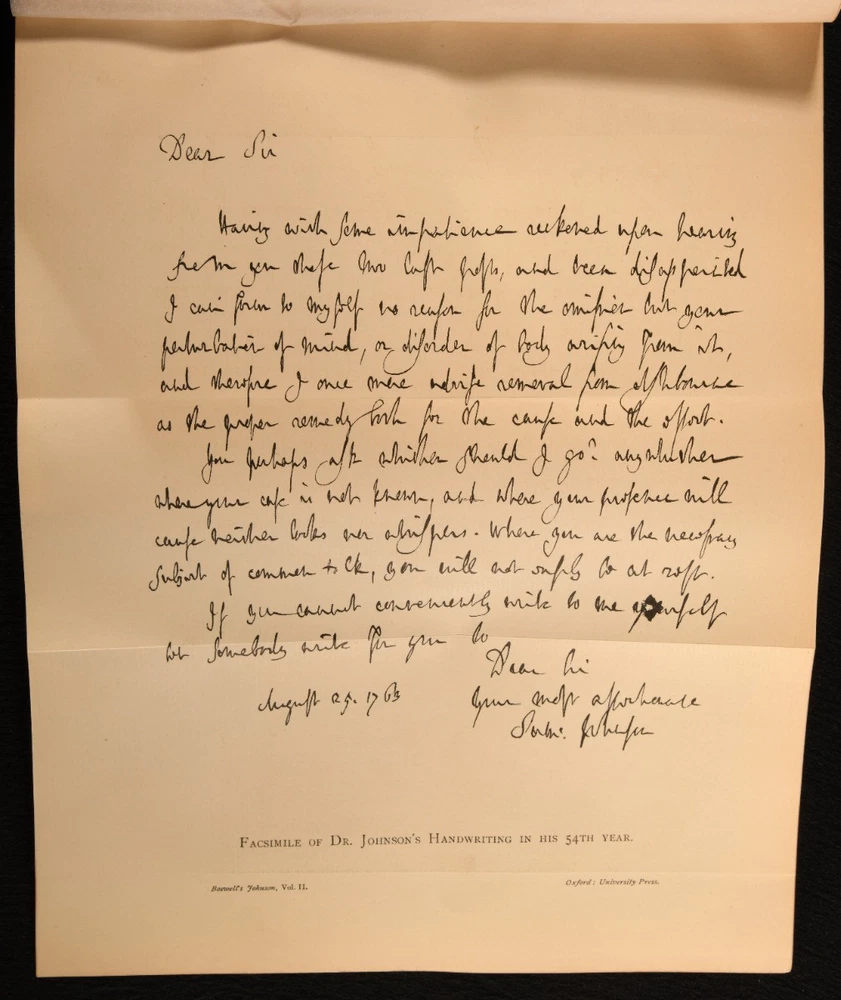 Dear Sir
Having with some impatience reckoned upon hearing
from you these two last posts, and been disappointed
I can form to myself no reason for the omission but your
perturbation of mind, or disorder of body arising from it,
and therefore I once more advise removal from Ashbourne
as the proper remedy both for the cause and the effect.
You perhaps ask whither should I go? any whither
where your case is not known, and where your presence will
cause neither looks nor whispers. Where you are the necessary
subject of common talk, you will not easily be at rest.
If you cannot conveniently write to me yourself
let somebody write for you to
Dear Sir
August 25. 1763
Your most affectionate
Sam: Johnson
Facsimile of Dr. Johnson's Handwriting in his 54th year.
Boswell's Johnson, Vol. II.
Oxford: University Press.